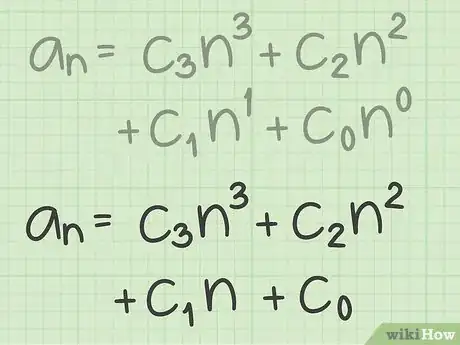 aₙ = C₃n³ + C₂n²
+ C₁n¹ + C₀n⁰
aₙ = C₃n³ + C₂n²
+ C₁n + C₀
wikiHow